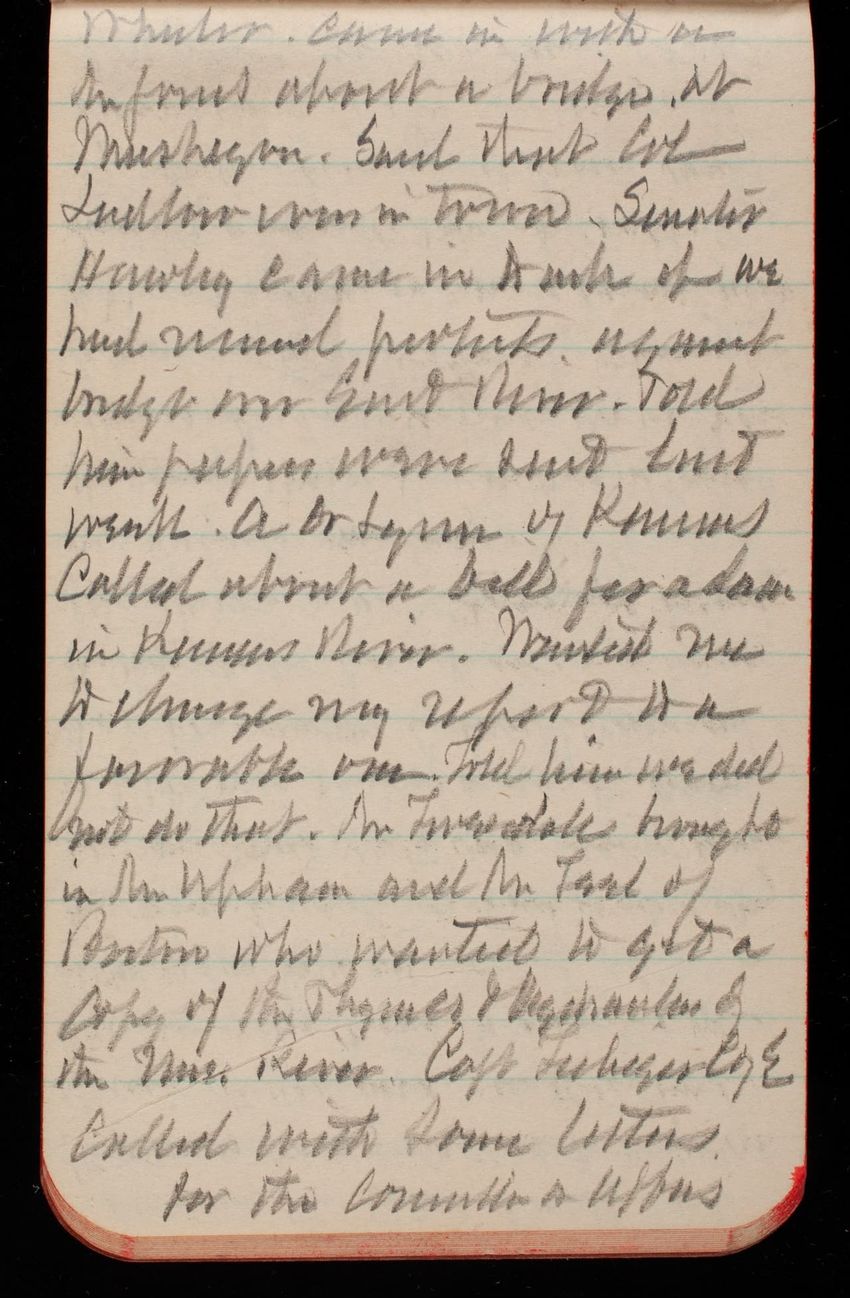 Wheeler. came in with a
Mr Jones about a bridge at
Muskegon. Said that Col
Ludlow was in town. Senator
Hawley came in to ask if we
had recvd protests against
bridge over East River. Told
him papers were sent last
week. A Dr of Kansas
Called about a bill for a dam
in Kansas River. Wanted me
to change my report to a
favorable one. Told him we did
not do that. Mr Tweedale brought
in Mr Upham and Mr of
Boston who wanted to get a
Copy of the Physics & Hydraulics of
the Miss. River. Capt Cos E
Called with some letters
for the